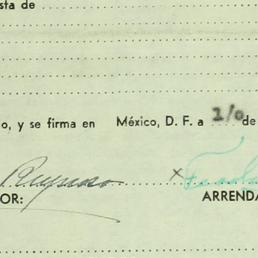 sta de
o, y se firma en México, D. F. a 1/o de
OR: ARRENDA